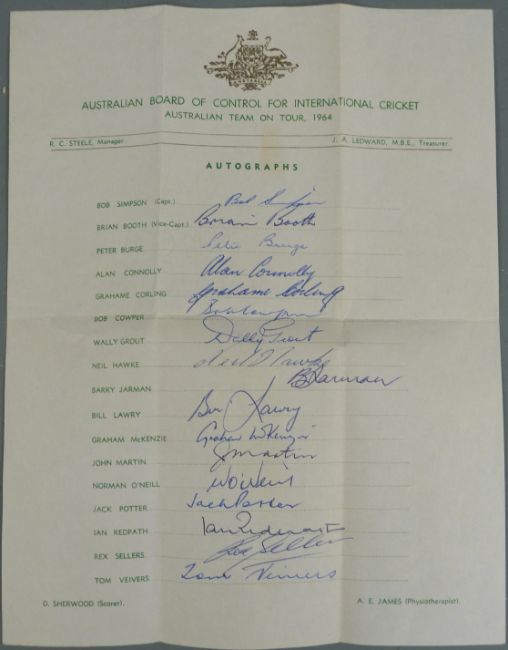 AUSTRALIAN BOARD OF CONTROL FOR INTERNATIONAL CRICKET
AUSTRALIAN TEAM ON TOUR, 1964
R. C. STEELE, Manager J. A. LEDWARD, M.B.E., Treasurer.
AUTOGRAPHS
BOB SIMPSON (Capt.) Bob Simpson
BRIAN BOOTH (Vice-Capt.) Brian Booth
PETER BURGE Peter Burge
ALAN CONNOLLY Alan Connolly
GRAHAME CORLING Grahame Corling
BOB COWPER Bob Cowper
WALLY GROUT Wally Grout
NEIL HAWKE Neil Hawke
BARRY JARMAN B Jarman
BILL LAWRY Bill Lawry
GRAHAM McKENZIE Graham McKenzie
JOHN MARTIN J Martin
NORMAN O'NEILL N O'Neill
JACK POTTER Jack Potter
IAN REDPATH Ian Redpath
REX SELLERS Rex Sellers
TOM VEIVERS Tom Veivers
D. SHERWOOD (Scorer). A. E. JAMES (Physiotherapist).